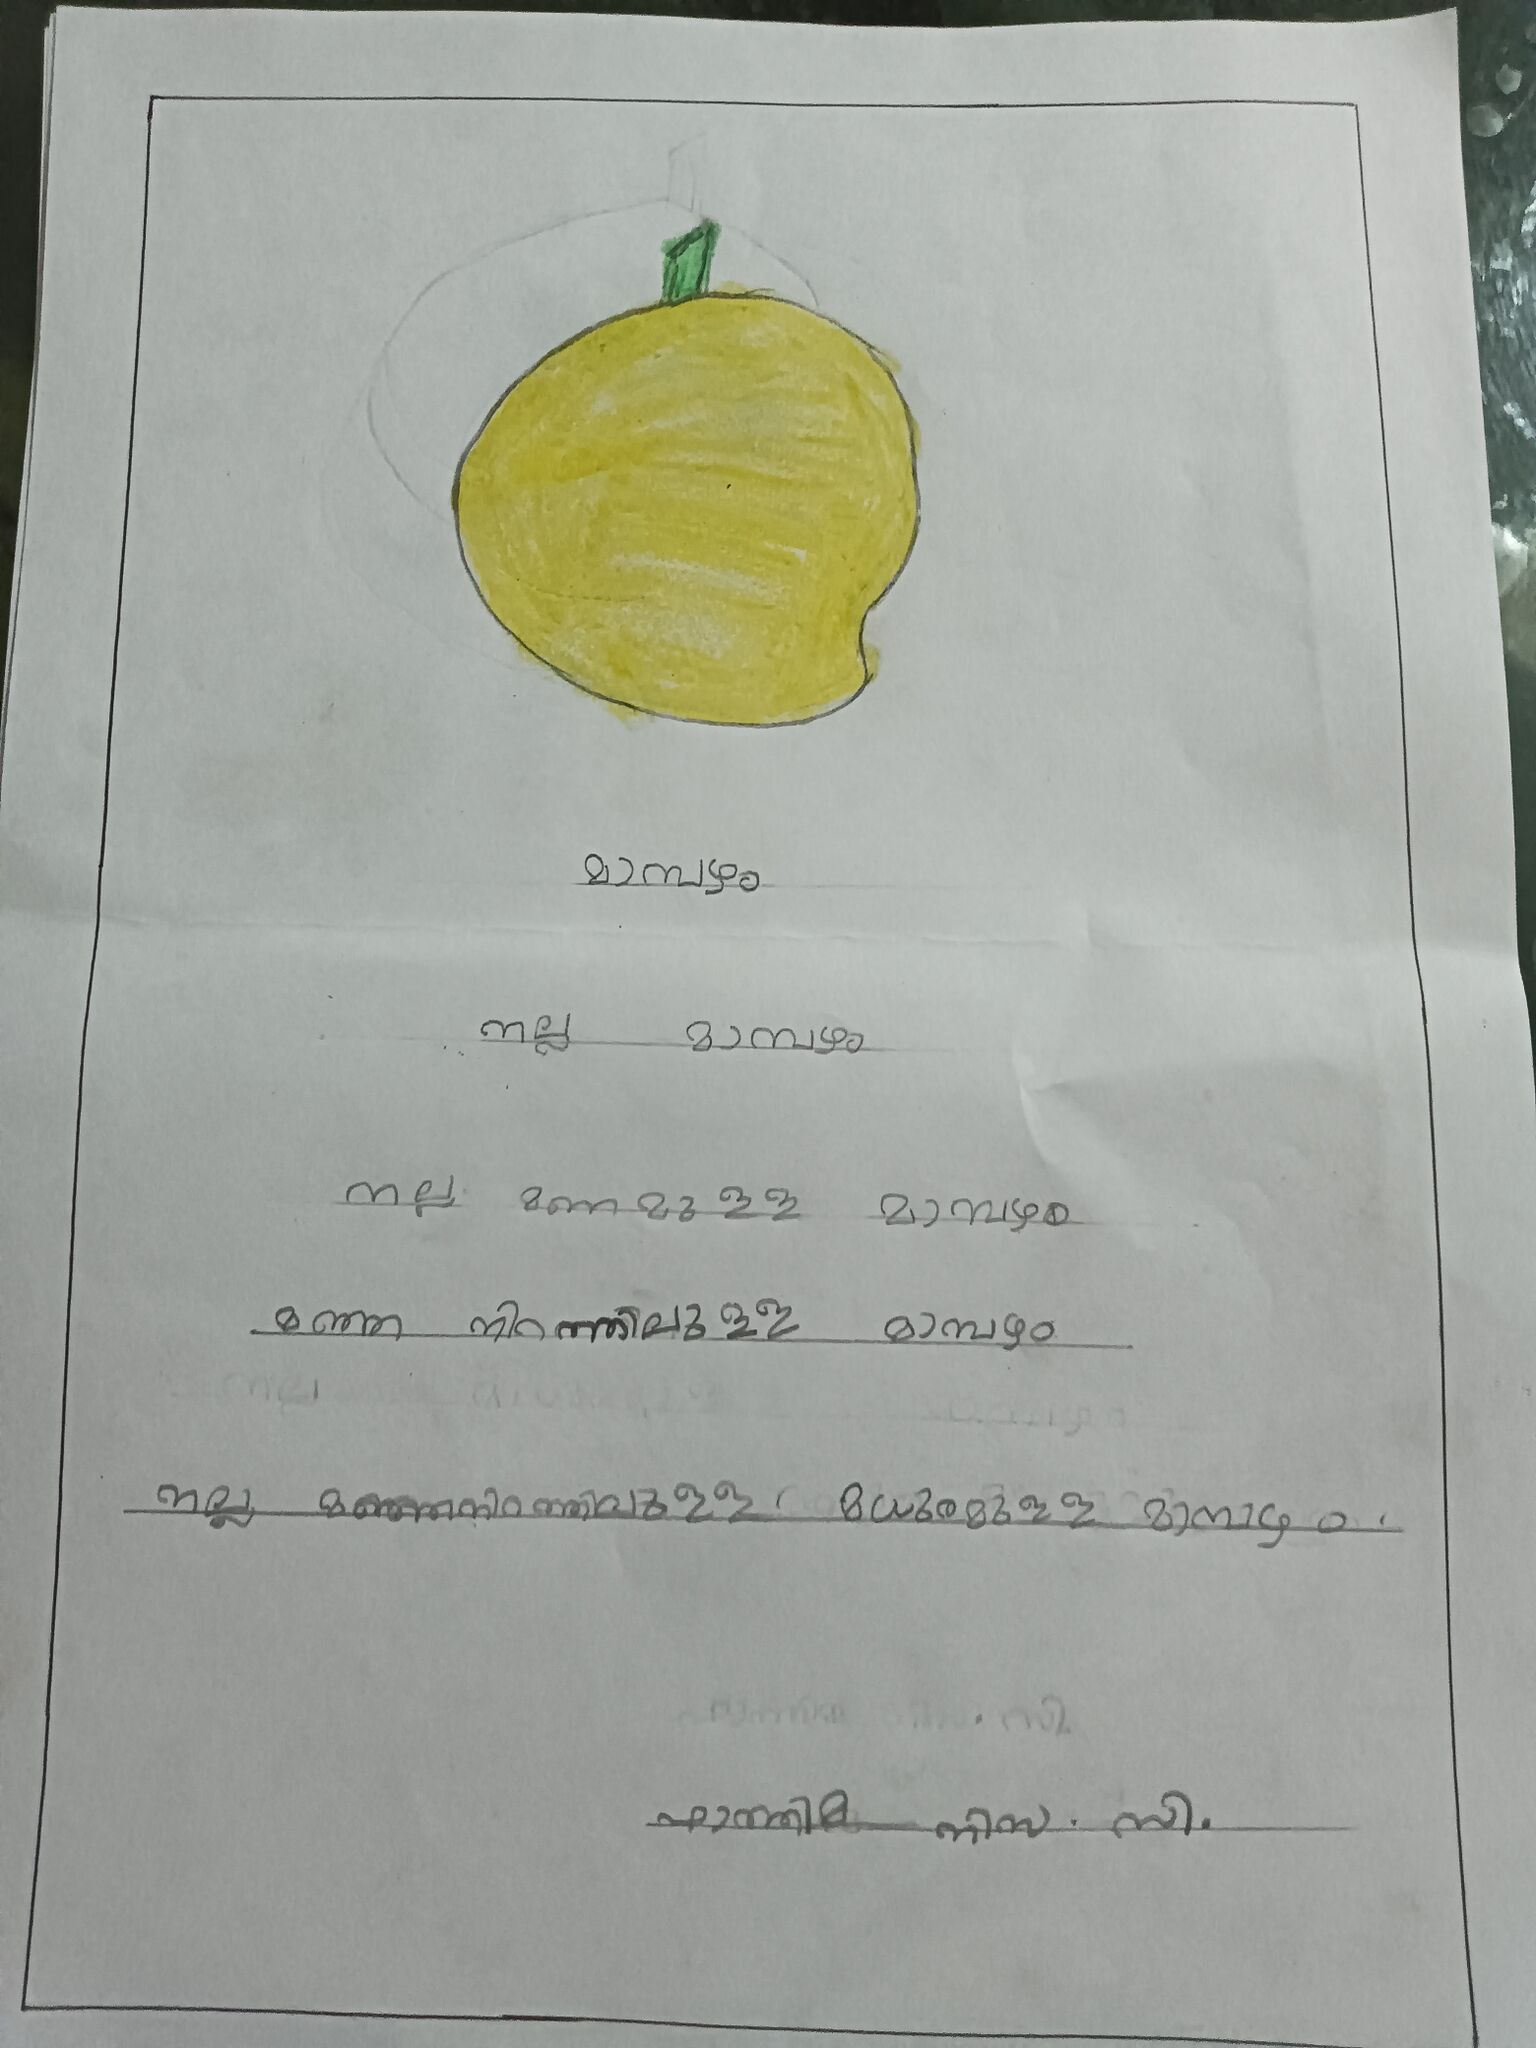 മാമ്പഴം
നല്ല മാമ്പഴം
നല്ല മണമുള്ള മാമ്പഴം
മഞ്ഞ നിറത്തിലുള്ള മാമ്പഴം
നല്ല മഞ്ഞനിറത്തിലുള്ള മധുരമുള്ള മാമ്പഴം.
ഫാത്തിമ നിസ. സി.